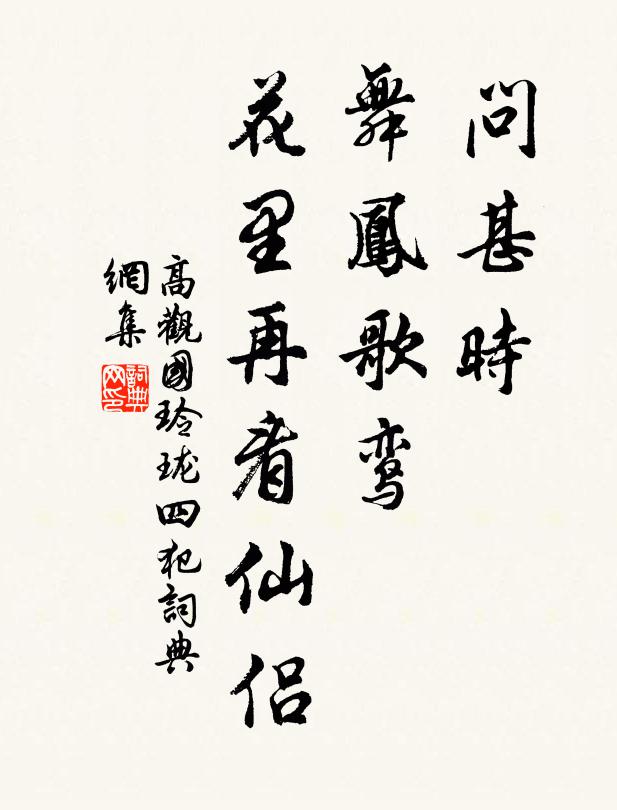 問甚時
舞鳳歌鸾
花里再看仙侣
高觀國玲珑四犯詞典
網集
詞典
网印